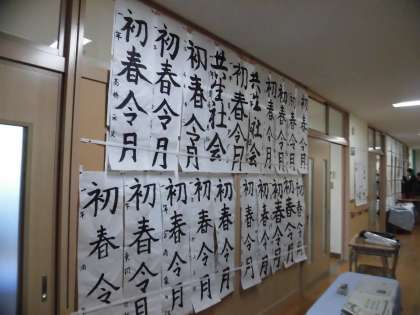 初春令月
初春令月
初春令月
共生社会
初春令月
共生社会
初春令月
初春令月
初春令月
初春令月
初春令
初春令月
初春令月
初春令月
初春令月
初春令月
初春令月
初春令月
初春令月
初春令月